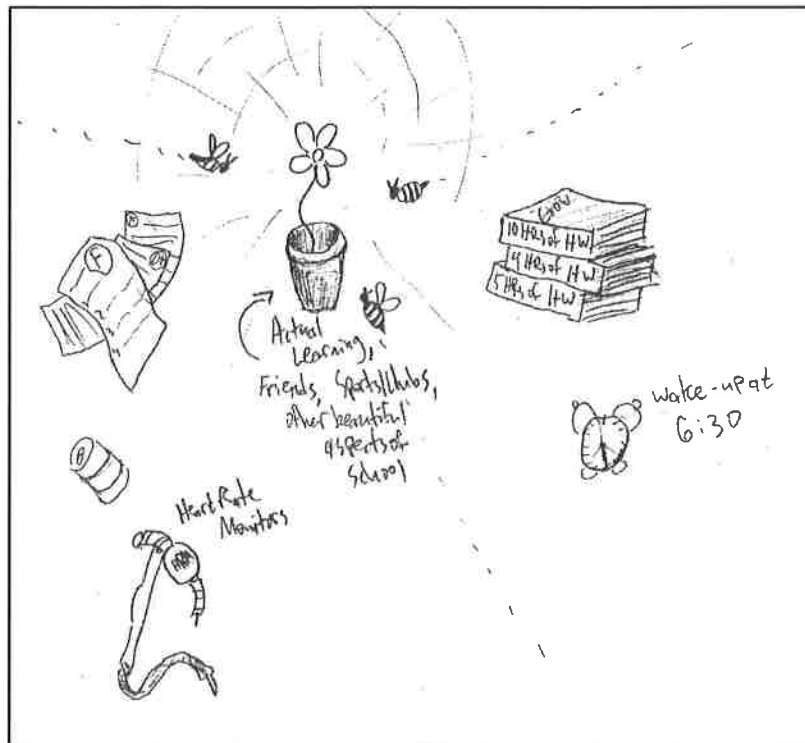 F
10 HRs of HW
9 HRs of HW
5 HRs of HW
Actual
Learning,
Friends, Sports/Clubs,
other beautiful
aspects of
School
wake-up at
6:30
Heart Rate
Monitors
HRM